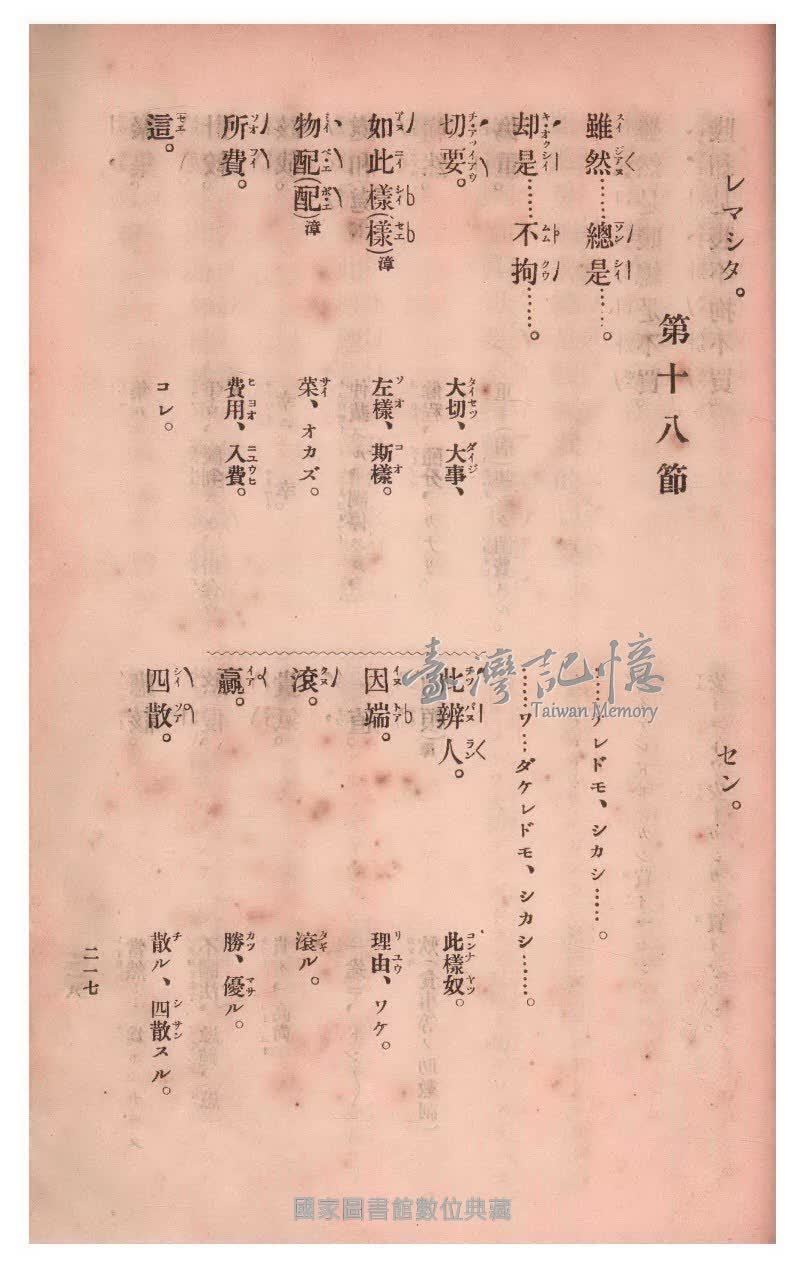 レマシタ。
セン。
第十八節
雖然……總是……。
……ケレドモ、シカシ……。
却是……不拘……。
……ワ……ダケレドモ、シカシ……。
切要。
大切、大事、
如此樣(樣)漳
左樣、斯樣。
物配(配)漳
菜、オカズ。
所費。
費用、入費。
這。
コレ。
此辨人。
此樣奴。
因端。
理由、ワケ。
滾。
滾ル。
贏。
勝、優ル。
四散。
散ル、四散スル。
二一七
臺灣記憶
Taiwan Memory
國家圖書館數位典藏